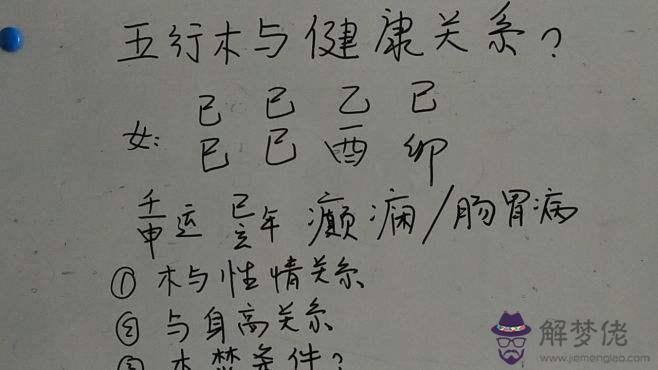 五行木与健康关系?
己 己 乙 己
女: 巳 巳 酉 卯
壬申运 己丑年 癫痫/肠胃病
① 木与性情关系
② 与身高关系
③ 木焚条件?
解梦佬
www.jiemenglao.com